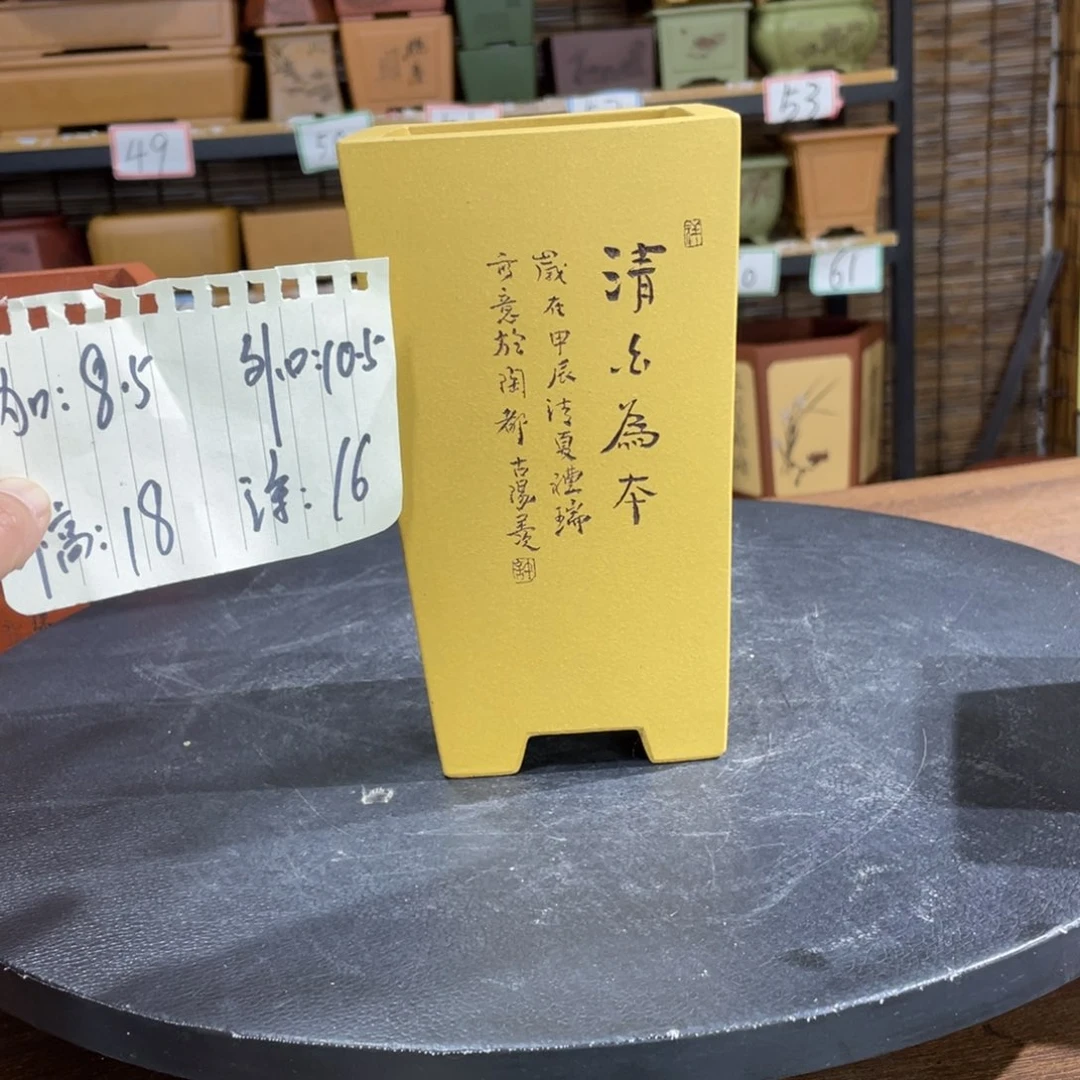 清心為本
歲在甲辰清夏禮瑞
寫意於陶都古陽羨
内口:8.5 外口:10.5
高:18 深:16
49
53
61